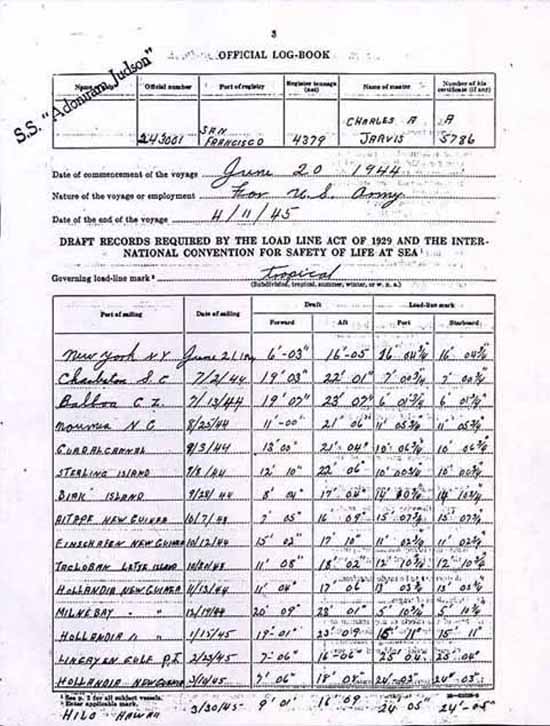 3
OFFICIAL LOG-BOOK
S.S. "Adoniram Judson"
Official number Port of registry Register tonnage (net) Name of master Number of his certificate (if any)
243001 SAN FRANCISCO 4379 CHARLES A JARVIS A 5786
Date of commencement of the voyage June 20 1944
Nature of the voyage or employment For U.S. Army
Date of the end of the voyage 4/11/45
DRAFT RECORDS REQUIRED BY THE LOAD LINE ACT OF 1929 AND THE INTER-
NATIONAL CONVENTION FOR SAFETY OF LIFE AT SEA
Governing load-line mark tropical
(Subdivided, tropical, summer, winter, or w. n. a.)
Draft Load-line mark
Port of sailing Date of sailing Forward Aft Port Starboard
New York N.Y. June 21, 6'-03" 16'-05 16 04¾ 16' 04¾
Charleston S.C 7/2/44 19' 03" 22' 01" 7' 00¾ 7' 00¾
Balboa C.Z. 7/13/44 19' 07" 23' 07" 6' 01¾ 6' 01¾
NOUMEA N C 8/25/44 11'-00" 21' 06 11' 05¾ 11' 05¾
GUADALCANAL 9/3/44 13' 00" 21' 04" 10' 06¾ 10' 06¾
STERLING ISLAND 9/8/44 12' 10" 22' 06 10' 00¾ 10' 00¾
ISLAND 9/28/44 8' 04" 17' 04" 14' 10¾ 14' 10¾
AITAPE NEW GUINEA 10/7/44 7' 05" 16' 09" 15' 07¾ 15' 07¾
FINSCHAFEN NEW GUINEA 10/12/44 15' 02" 17' 10" 11' 02¾ 11' 02¾
TACLOBAN LEYTE ISLAND 18' 02" 12' 10¾ 12' 10¾
HOLLANDIA NEW GUINEA 11/13/44 11' 04" 17' 06 13' 05¾
MILNEBAY " " 12/19/44 20' 09" 23' 01" 5' 10¾ 5' 10¾
HOLLANDIA " " 1/15/45 19'-01" 23' 09 15' 11" 15' 11"
LINGAYEN GULF P.I. 2/23/45 7'-06" 16'-06" 25' 04 25' 04"
HOLLANDIA NEW GUINEA 3/10/45 7' 06" 18' 08" 24'-03" 24'-03"
See p. 2 for all subject vessels.
Enter applicable mark.
HILO HAWAII 3/30/45 9' 01" 16' 09" 24' 05" 24'-05"